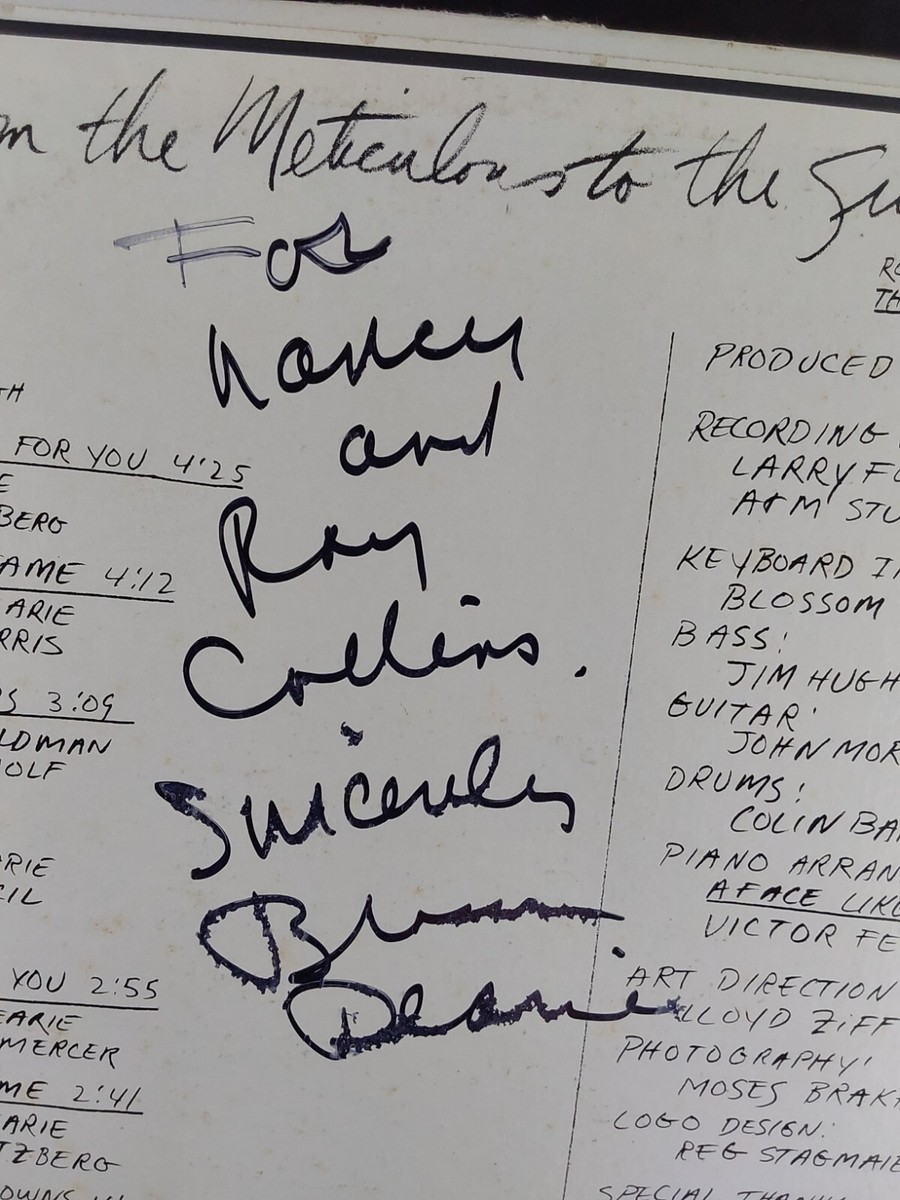 the Meticulous to the
For
Nancy
and
Ray
Collins.
Sincerely
Blossom
Dearie
FOR YOU 4'25
E
BERG
AME 4:12
ARIE
RRIS
S 3:09
LDMAN
OLF
ARIE
CIL
YOU 2:55
EARIE
MERCER
ME 2:41
ARIE
TZBERG
PRODUCED
RECORDING
LARRY FO
A&M STU
KEYBOARD IN
BLOSSOM
BASS:
JIM HUGH
GUITAR:
JOHN MOR
DRUMS:
COLIN BA
PIANO ARRAN
A FACE LIKE
VICTOR FE
ART DIRECTION
LLOYD ZIFF
PHOTOGRAPHY:
MOSES BRAK
LOGO DESIGN:
REG STAGMAIE
SPECIAL THANK